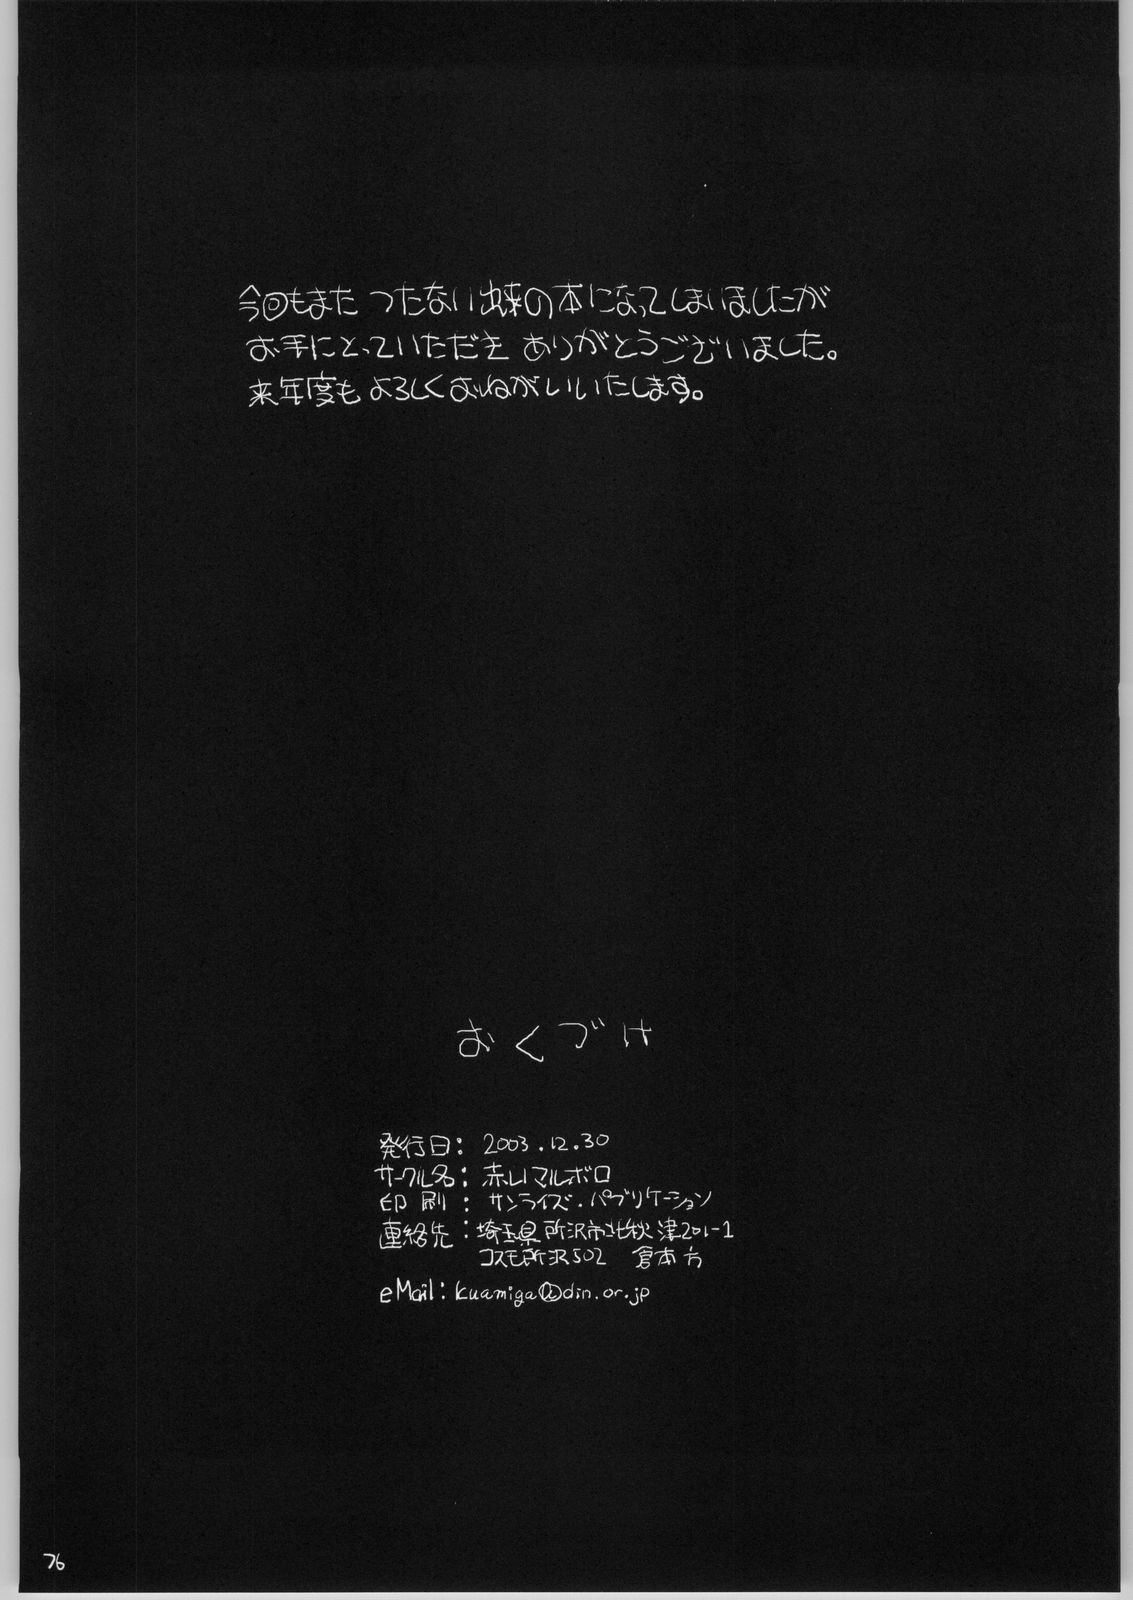 今回もまた つたない出来の本になってしまいましたが
お手にとっていただき ありがとうございました。
来年度も よろしくおねがいいたします。
おくづけ
発行日: 2003.12.30
サークル名: 赤いマルボロ
印刷: サンライズ・パブリケーション
連絡先: 埼玉県所沢市北秋津201-1
コスモ所沢502 倉本方
eMail: kuamiga@din.or.jp
76